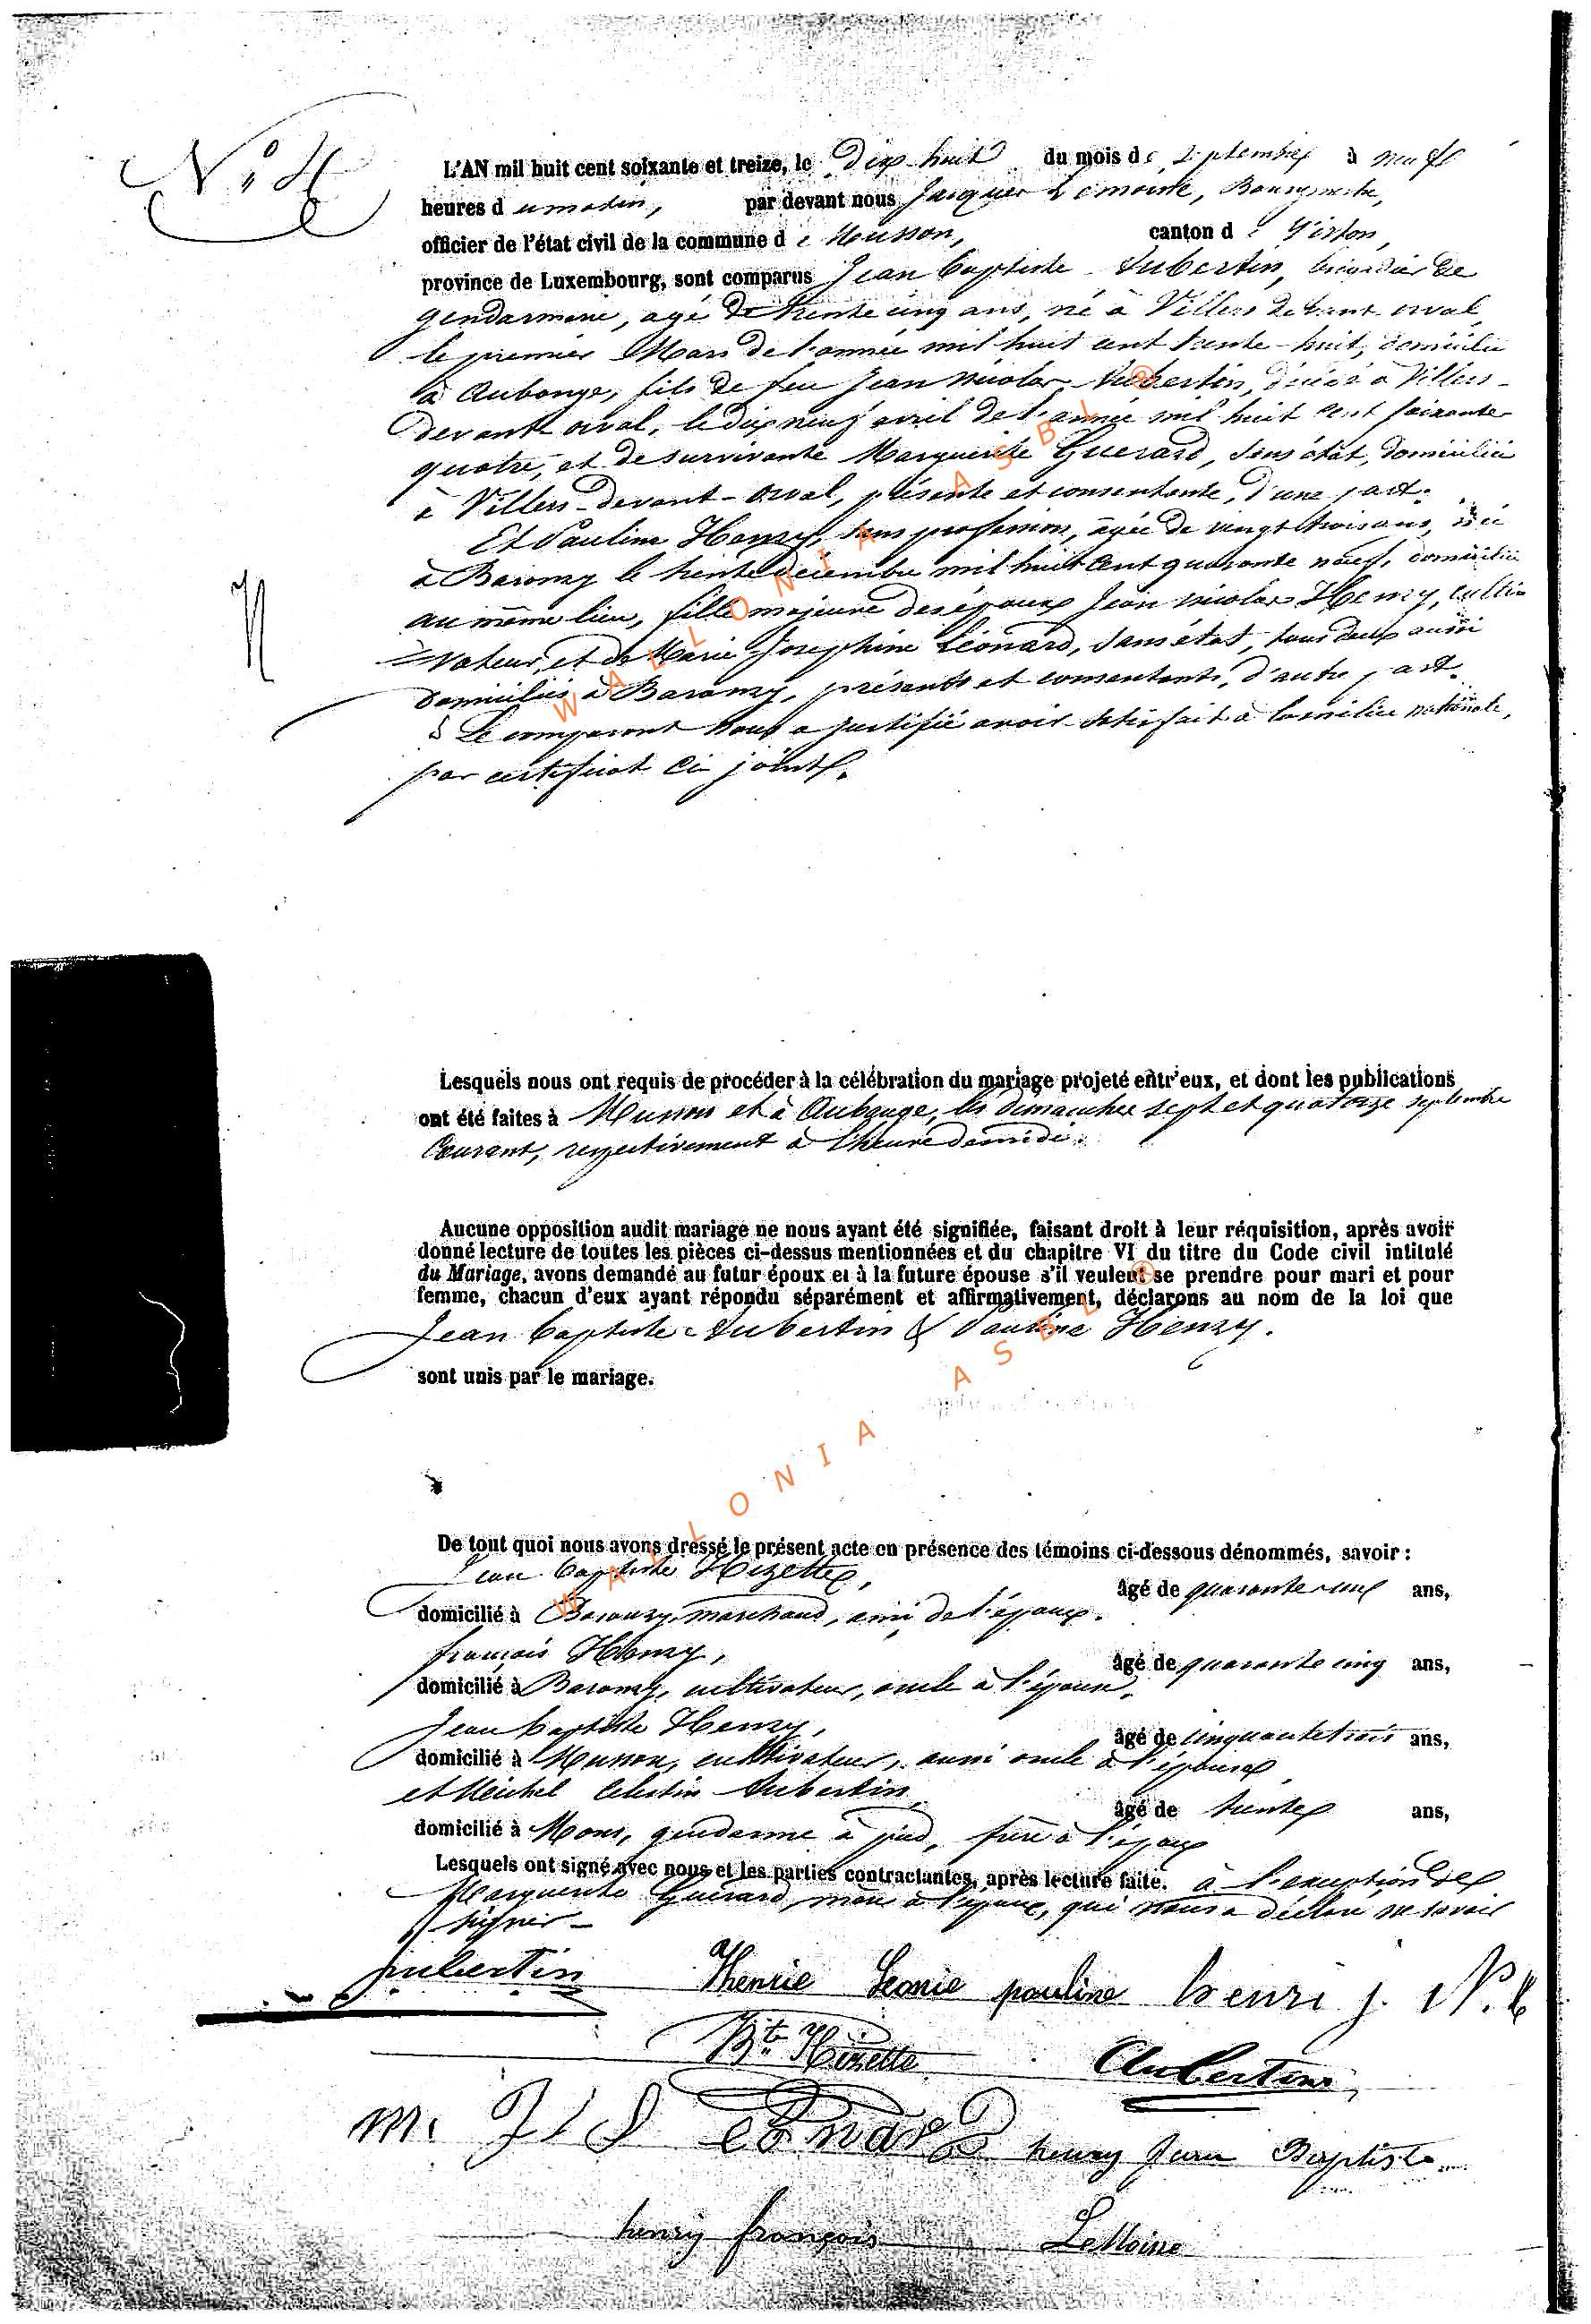 N° 4
L'AN mil huit cent soixante et treize, le Dix huit du mois de septembre à neuf
heures du matin, par devant nous Jacques Lemoine, Bourgmestre,
officier de l'état civil de la commune de Musson, canton de Virton,
province de Luxembourg, sont comparus Jean Baptiste Aubertin, brigadier de
gendarmerie, agé de trente cinq ans, né à Villers devant orval,
le premier Mars de l'année mil huit cent trente-huit, domicilié
à Aubange, fils de feu Jean nicolas Aubertin, décédé à Villers-
devant orval, le dix neuf avril de l'année mil huit cent soixante
quatre, et de survivante Marguerite Guerard, sans état, domiciliée
à Villers-devant-orval, présente et consentante, d'une part.
Et Pauline Henry, sans profession, agée de vingt trois ans, née
à Baranzy le trente décembre mil huit cent quarante neuf, domiciliée
au même lieu, fille majeure des époux Jean nicolas Henry, culti
=vateur, et de Marie Josephine Léonard, sans état, tous deux aussi
domiciliés à Baranzy, présents et consentants, d'autre part.
Le comparant nous a justifié avoir satisfait à la milice nationale,
par certificat ci joint.
Lesquels nous ont requis de procéder à la célébration du mariage projeté entr'eux, et dont les publications
ont été faites à Musson et à Aubange, les dimanches sept et quatorze septembre
courant, respectivement à l'heure de midi.
Aucune opposition audit mariage ne nous ayant été signifiée, faisant droit à leur réquisition, après avoir
donné lecture de toutes les pièces ci-dessus mentionnées et du chapitre VI du titre du Code civil intitulé
du Mariage, avons demandé au futur époux et à la future épouse s'il veulent se prendre pour mari et pour
femme, chacun d'eux ayant répondu séparément et affirmativement, déclarons au nom de la loi que
Jean Baptiste Aubertin & Pauline Henry.
sont unis par le mariage.
De tout quoi nous avons dressé le présent acte en présence des témoins ci-dessous dénommés, savoir :
Jean Baptiste Hizette, âgé de quarante neuf ans,
domicilié à Baranzy, marchand, ami de l'époux.
françois Henry, âgé de quarante cinq ans,
domicilié à Baranzy, cultivateur, oncle à l'épouse.
Jean baptiste Henry, âgé de cinquante trois ans,
domicilié à Musson, cultivateur, aussi oncle à l'épouse,
et Meichel Celestin Aubertin, âgé de trente ans,
domicilié à Mons, gendarme à pied, frère à l'époux
Lesquels ont signé avec nous et les parties contractantes, après lecture faite. à l'exception de
Marguerite Guérard, mère à l'époux, qui nous a déclaré ne savoir
signer -
aubertin henrie Leonie pauline henri j. N.
Bte Hizette Aubertin
m. J L eonard henry Jean Baptiste
henry françois Lemoine
WALLONIA ASBL ®
WALLONIA ASBL ®